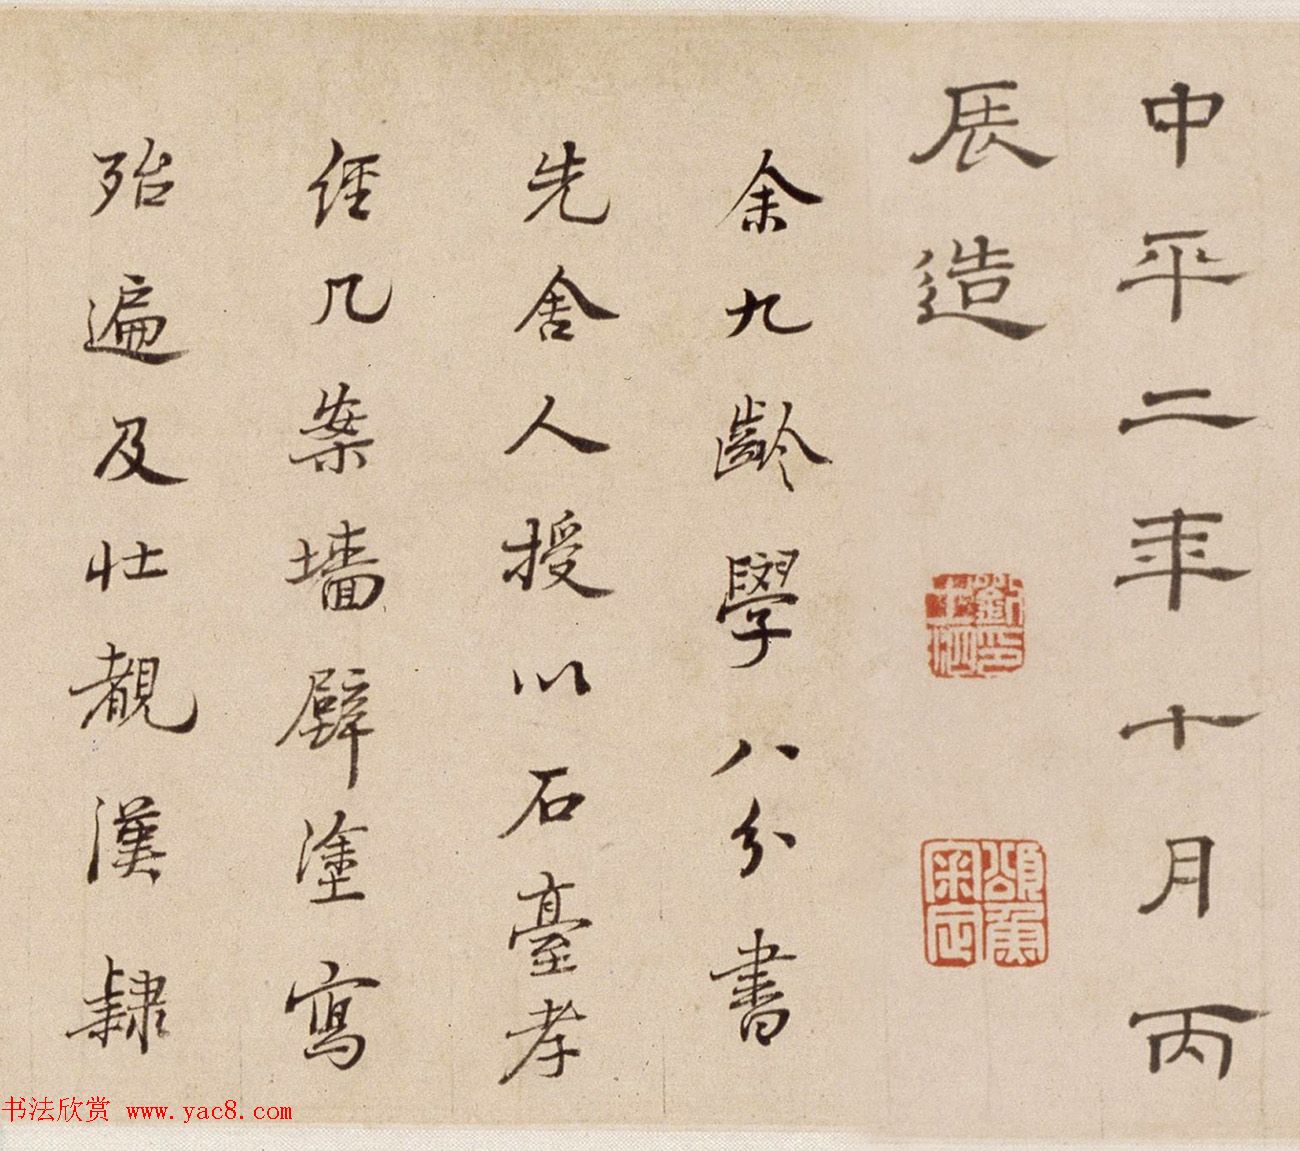 中平二年十月丙
辰造
余九齡學八分書
先舍人授以石臺孝
經几案墻壁塗寫
殆遍及壯覩漢隸
书法欣赏 www.yac8.com